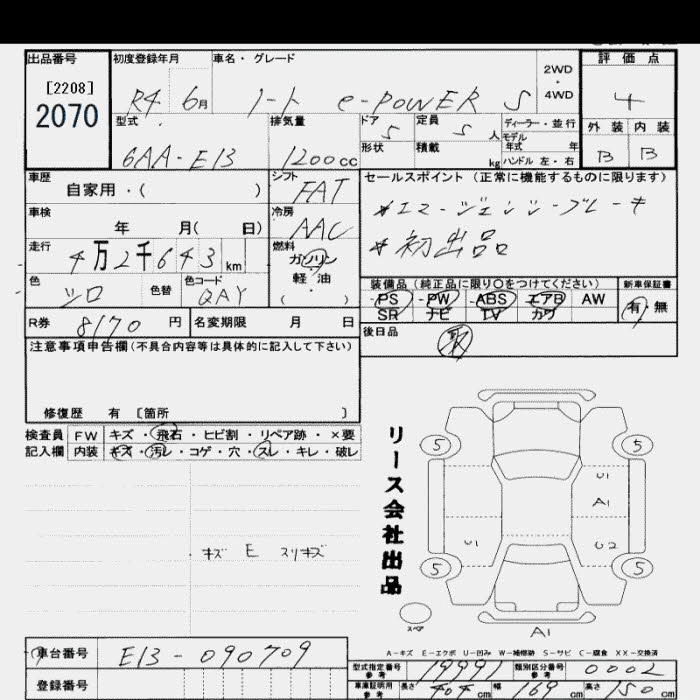 出品番号 初度登録年月 車名・グレード 評価点
[2208] 2WD・4WD
2070 R4 6月 ノート e-POWER S 4
型式 排気量 ドア 定員 ディーラー・並行 外装 内装
6AA-E13 1200cc 5 5人 モデル年式 年 B B
形状 積載 kg ハンドル 左・右
車歴 シフト セールスポイント (正常に機能するものに限ります)
自家用・( ) FAT
車検 冷房 *エマージェンシーブレーキ
年 月( 日) AAC *初出品
走行 燃料
4万2千643km ガソリン
色 色替 色コード 軽・油 装備品 (純正品に限り○をつけてください) 新車保証書
シロ QAY ( ) PS PW ABS エアB AW 有・無
SR ナビ TV カワ
R券 8170円 名変期限 月 日 後日品
取
注意事項申告欄(不具合内容等は具体的に記入して下さい)
修復歴 有 [箇所 ]
検査員 FW キズ・飛石・ヒビ割・リペア跡・×要
記入欄 内装 キズ・汚レ・コゲ・穴・スレ・キレ・破レ
リース会社出品
5 5
U1
A1
U1 U2
5 5
キズ E スリキズ
スペア
A1
A-キズ E-エクボ U-凹み W-補修跡 S-サビ C-腐食 XX-交換済
車台番号 E13-090709
型式指定番号 参考 19991 類別区分番号 参考 0002
登録番号
車庫証明用 参考 長さ 404cm 幅 169cm 高さ 150cm